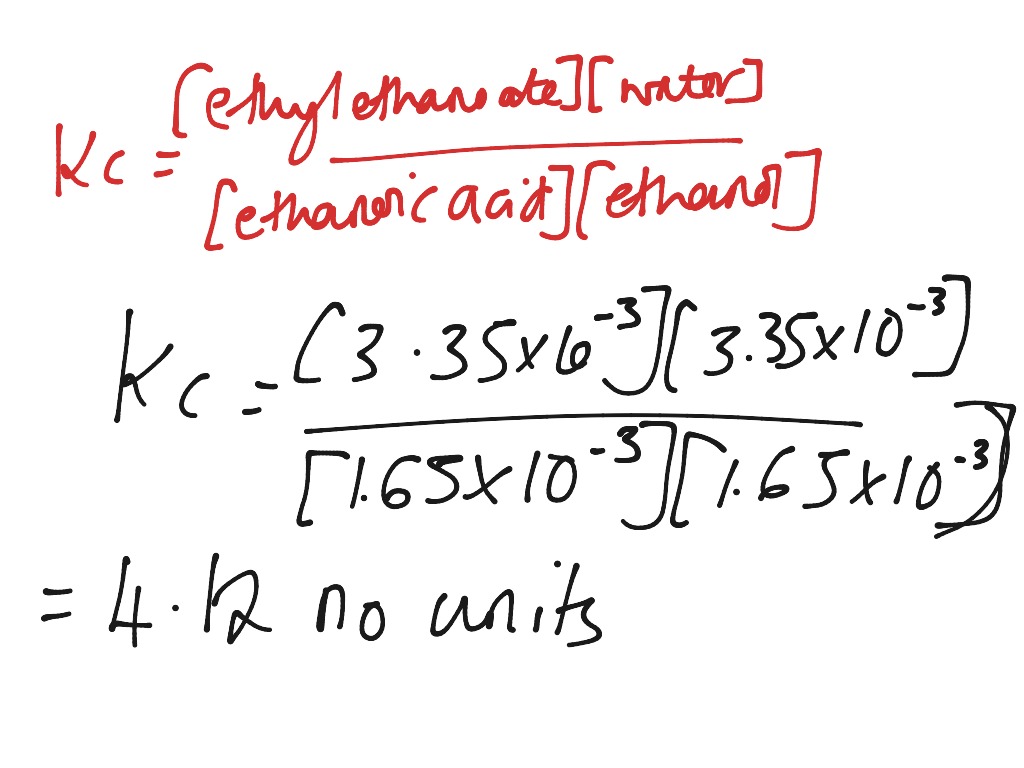 Kc = [ethyl ethanoate][water]
[ethanoic acid][ethanol]
Kc = [3.35x10⁻³][3.35x10⁻³]
[1.65x10⁻³][1.65x10⁻³]
= 4.12 no units